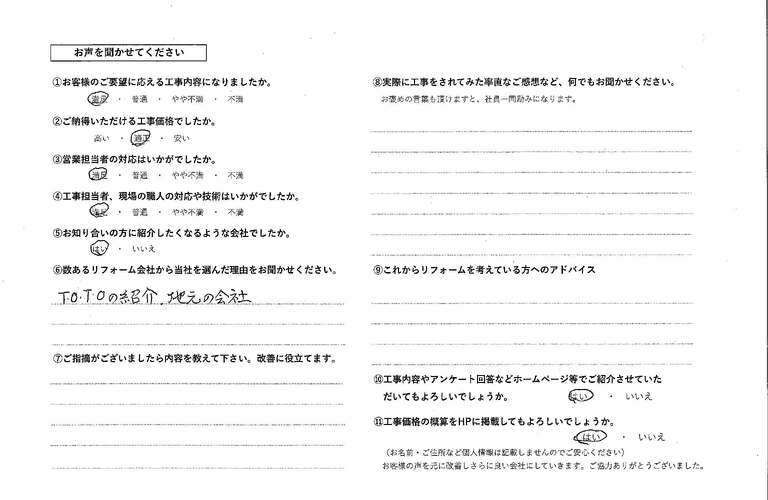 お声を聞かせてください
①お客様のご要望に応える工事内容になりましたか。
満足 ・ 普通 ・ やや不満 ・ 不満
②ご納得いただける工事価格でしたか。
高い ・ 適正 ・ 安い
③営業担当者の対応はいかがでしたか。
満足 ・ 普通 ・ やや不満 ・ 不満
④工事担当者、現場の職人の対応や技術はいかがでしたか。
満足 ・ 普通 ・ やや不満 ・ 不満
⑤お知り合いの方に紹介したくなるような会社でしたか。
はい ・ いいえ
⑥数あるリフォーム会社から当社を選んだ理由をお聞かせください。
T.O.T.Oの紹介、地元の会社
⑦ご指摘がございましたら内容を教えて下さい。改善に役立てます。
⑧実際に工事をされてみた率直なご感想など、何でもお聞かせください。
お褒めの言葉も頂けますと、社員一同励みになります。
⑨これからリフォームを考えている方へのアドバイス
⑩工事内容やアンケート回答などホームページ等でご紹介させていた
だいてもよろしいでしょうか。 はい ・ いいえ
⑪工事価格の概算をHPに掲載してもよろしいでしょうか。
はい ・ いいえ
（お名前・ご住所など個人情報は記載しませんのでご安心ください）
お客様の声を元に改善しさらに良い会社にしていきます。ご協力ありがとうございました。